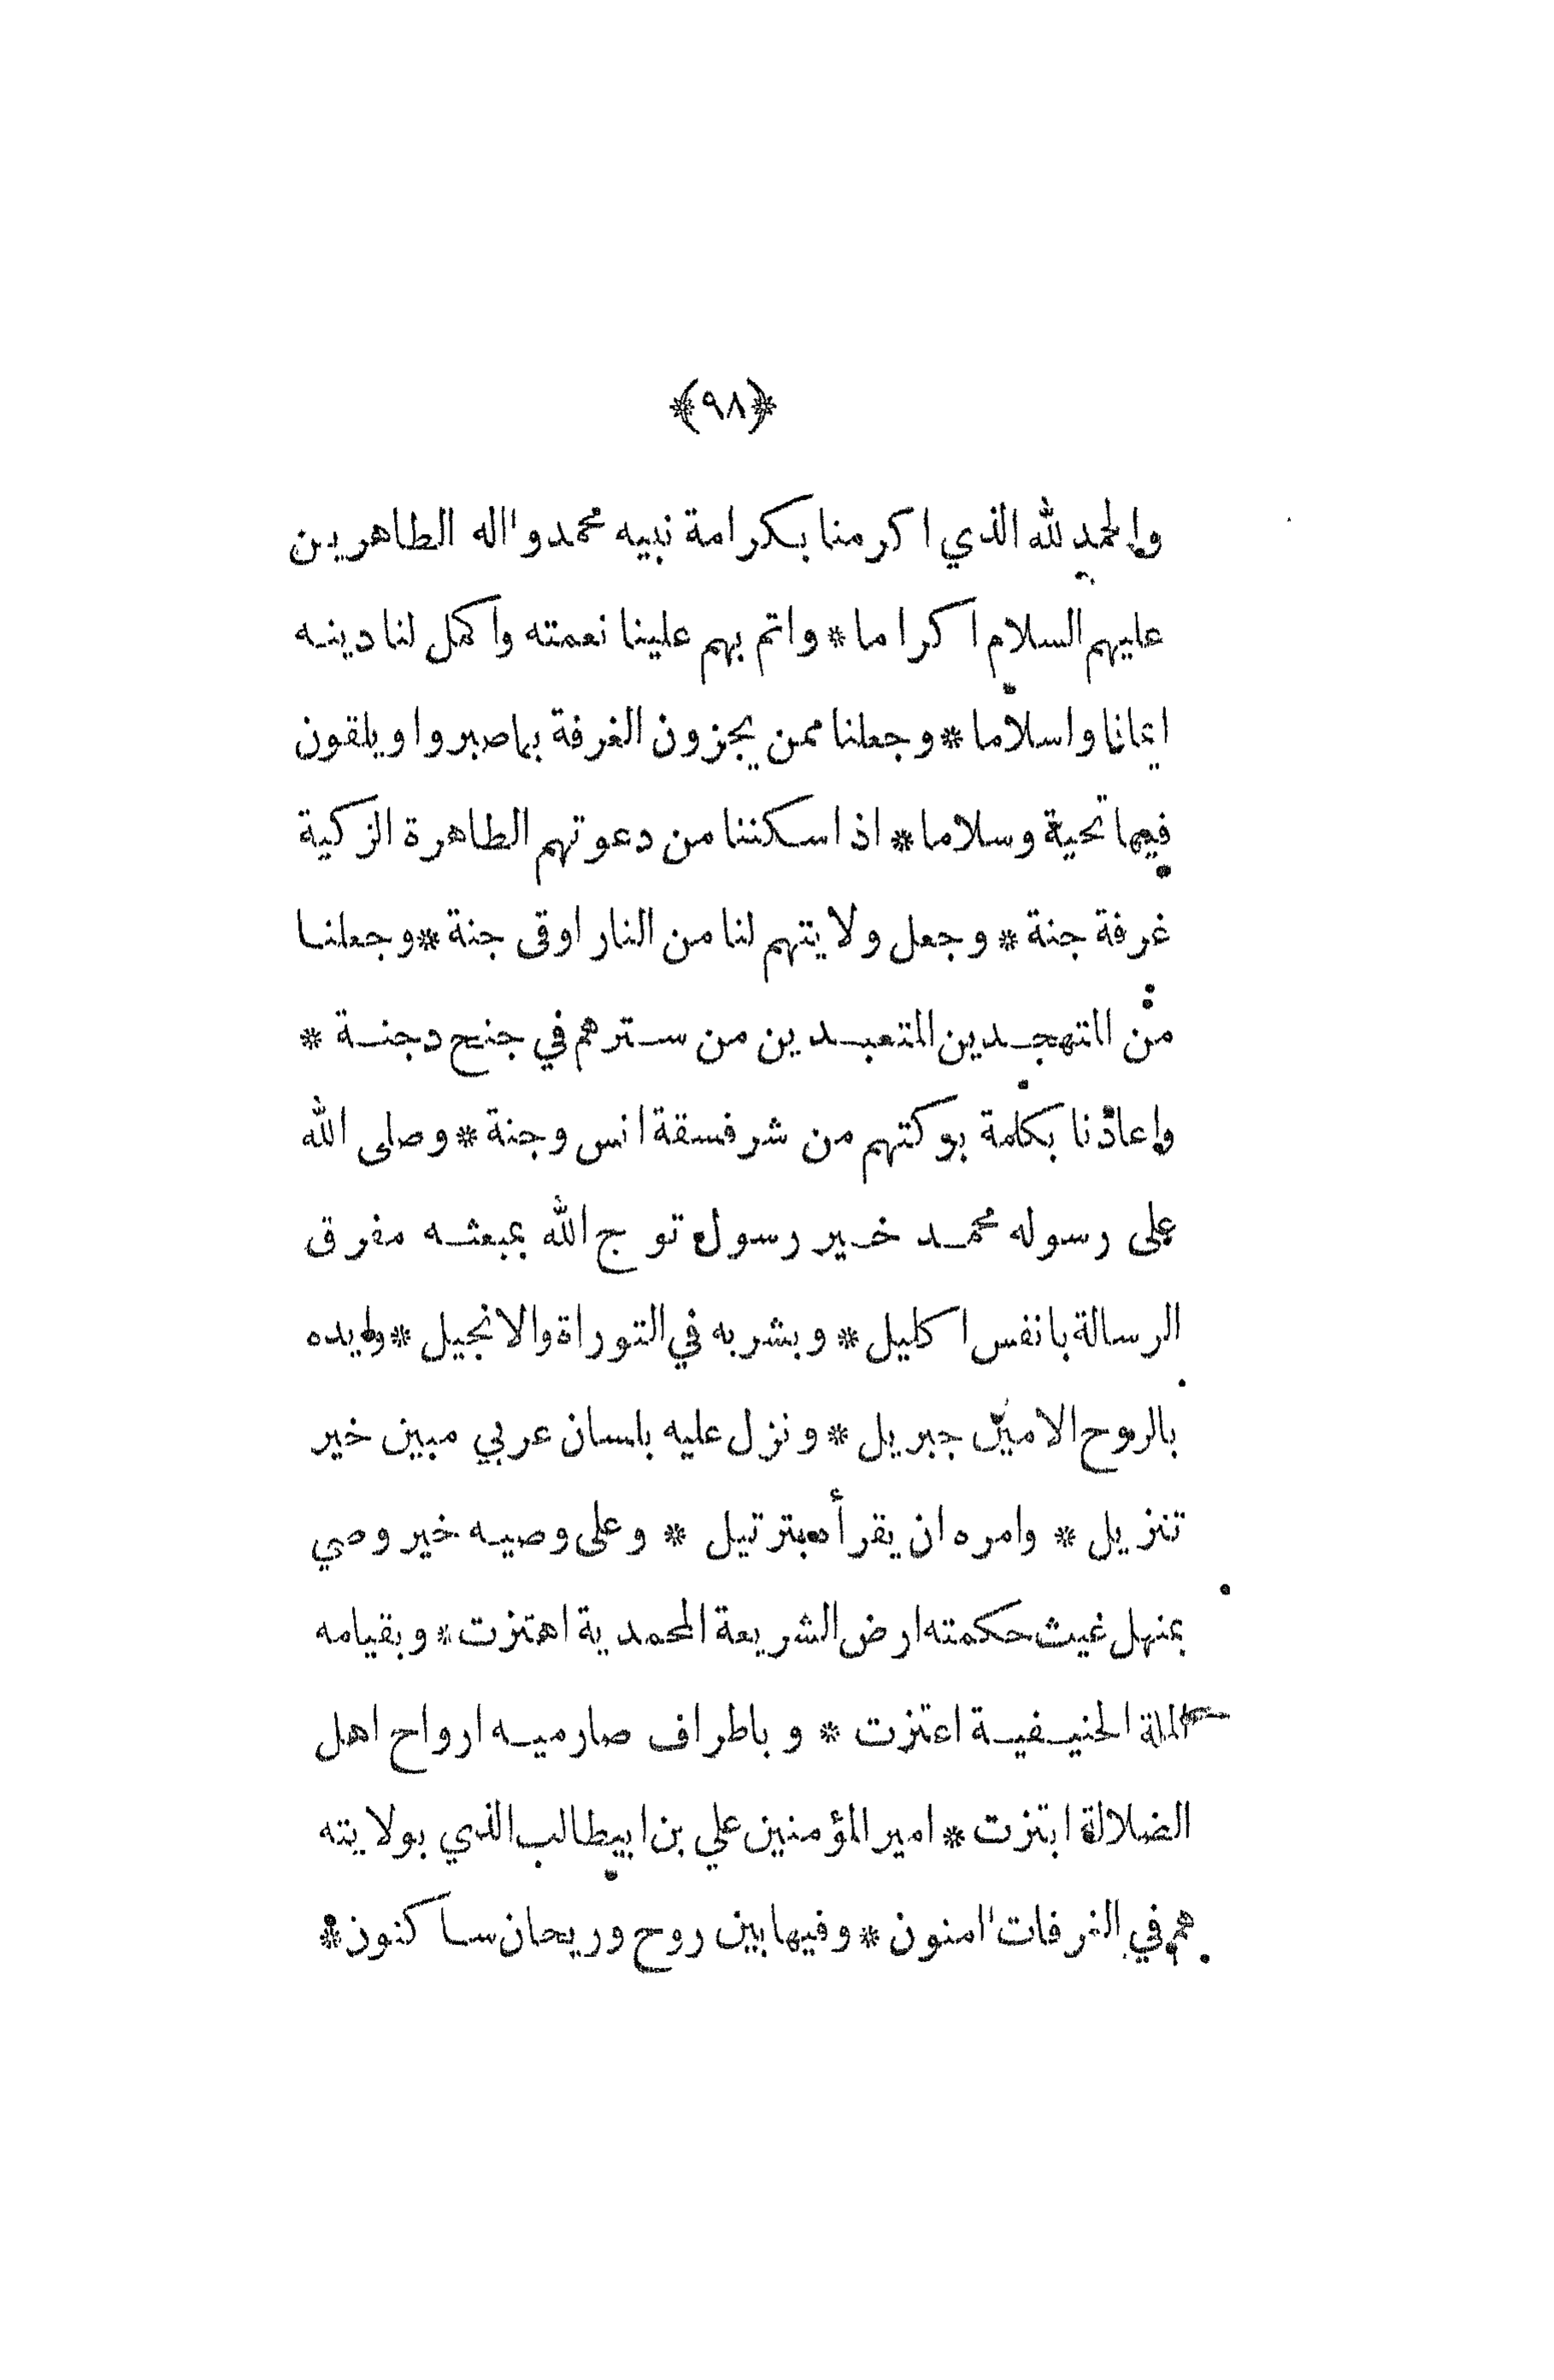 ﴿٩٨﴾
والحمد لله الذي اكرمنا بكرامة نبيه محمد واٰله الطاهرين
عليهم السلام اكراما * واتم بهم علينا نعمته واكمل لنا دينه
ايمانا واسلاما * وجعلنا ممن يجزون الغرفة بما صبروا ويلقون
فيها تحية وسلاما * اذ اسكننا من دعوتهم الطاهرة الزكية
غرفة جنة * وجعل ولايتهم لنا من النار اوقى جنة * وجعلنا
من المتهجدين المتعبدين من سترهم في جنح دجنة *
واعاذنا بكلمة بركتهم من شر فسقة انس وجنة * وصلى الله
على رسوله محمد خير رسول توج الله بمبعثه مفرق
الرسالة بانفس اكليل * وبشر به في التوراة والانجيل * وايده
بالروح الامين جبريل * ونزل عليه بلسان عربي مبين خير
تنزيل * وامره ان يقرأه بترتيل * وعلى وصيه خير وصي
بمنهل غيث حكمته ارض الشريعة المحمدية اهتزت * وبقيامه
الملة الحنيفية اعتزت * وباطراف صارميه ارواح اهل
الضلالة ابتزت * امير المؤمنين علي بن ابيطالب الذي بولايته
هم في الغرفات اٰمنون * وفيها بين روح وريحان ساكنون *